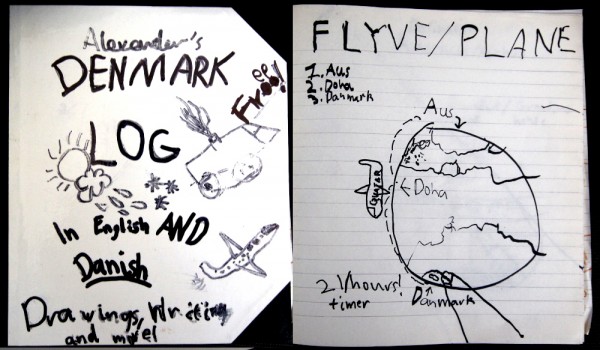 Alexander's
DENMARK
LOG
In English AND
Danish
Drawings, Writing
and more!
FLYVE/PLANE
1. Aus
2. Doha
3. Danmark
Aus
Doha
21 hours!
timer
Danmark